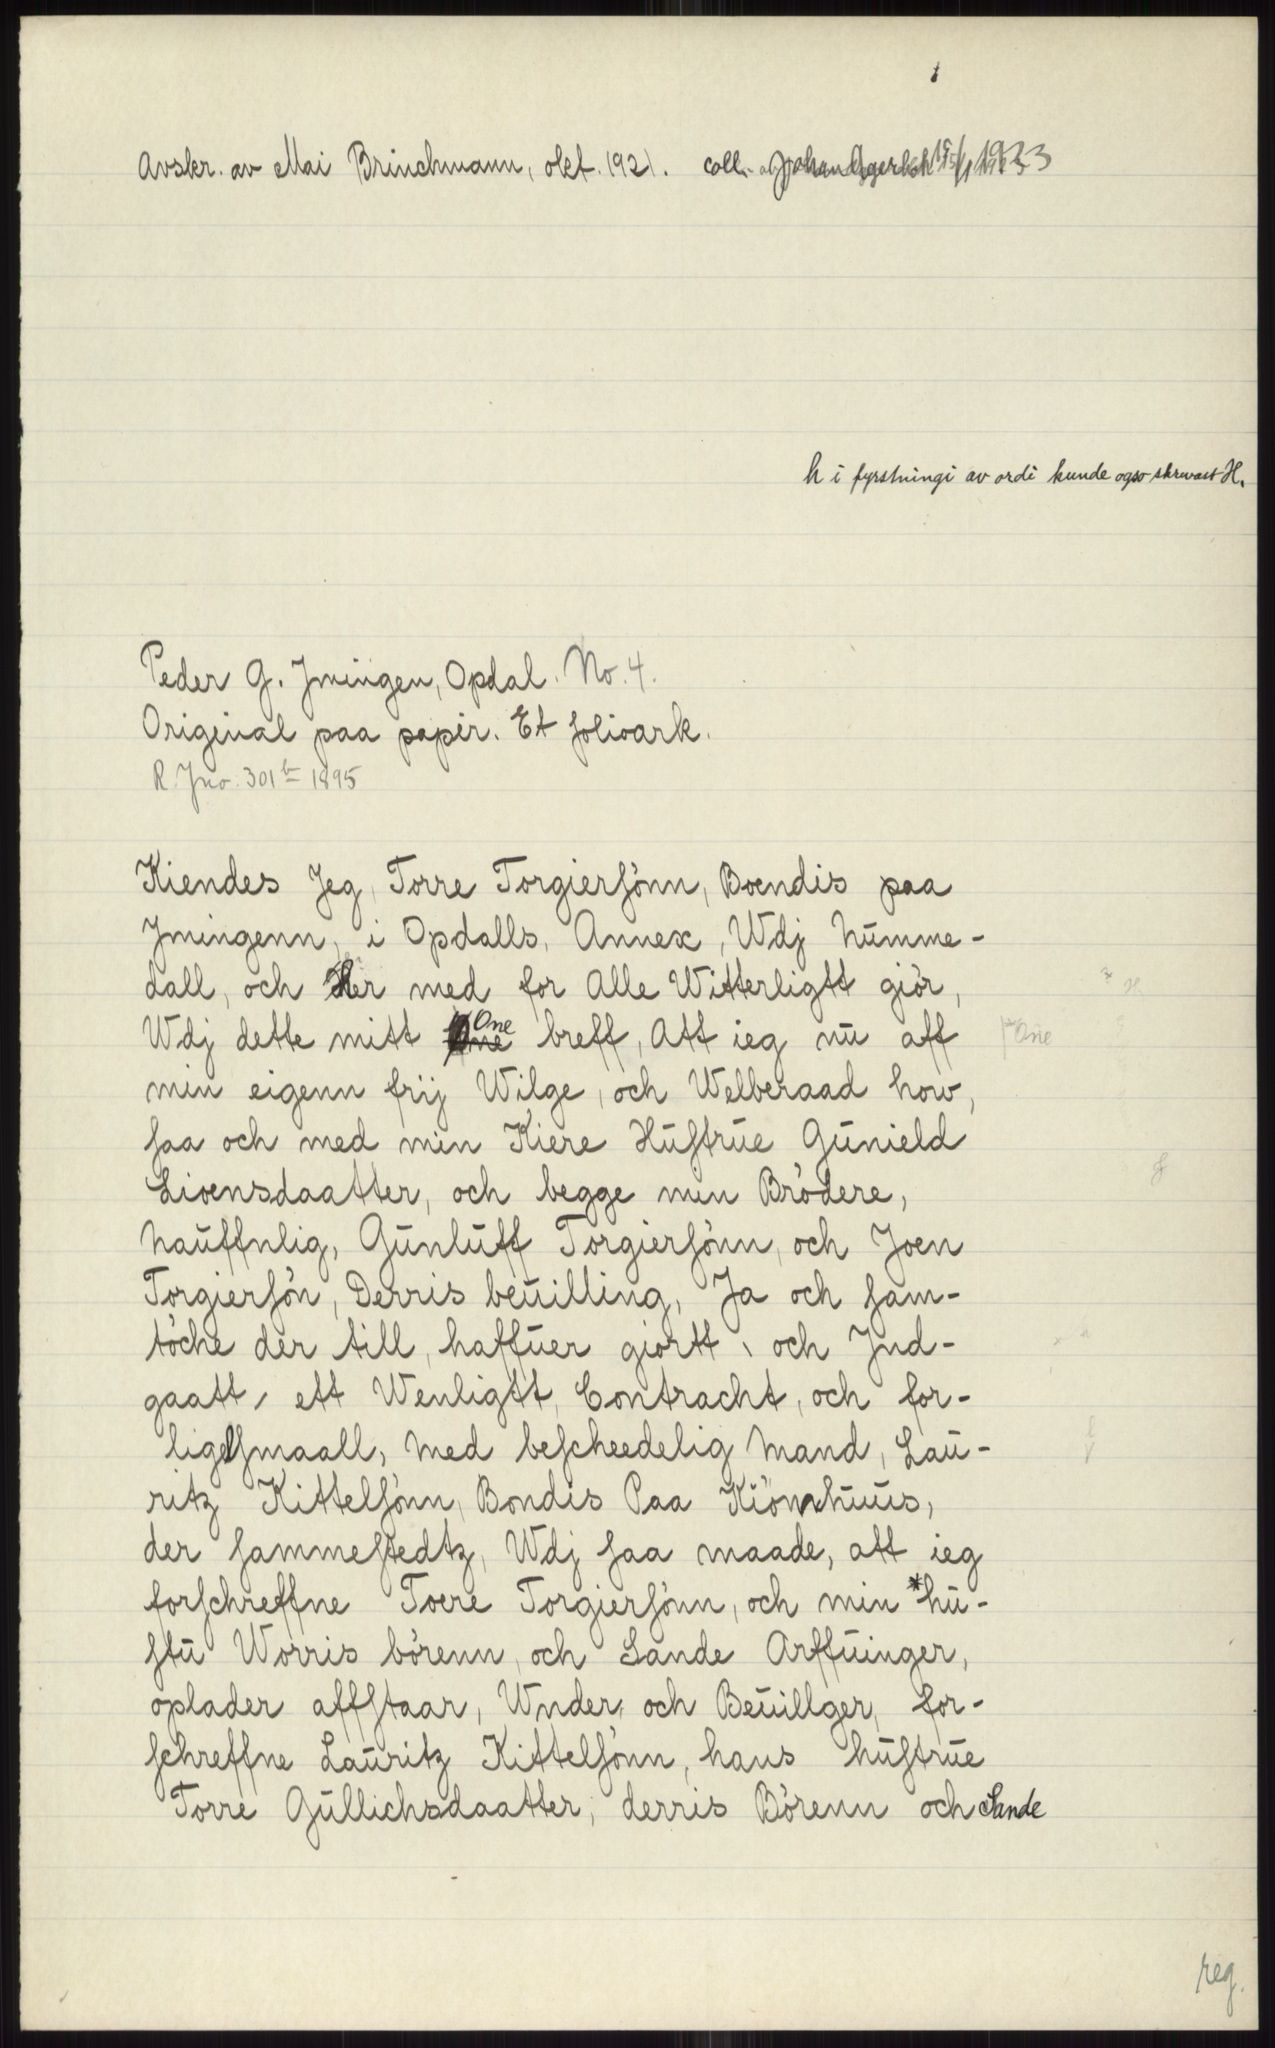 Avskr. av Mai Brinchmann, okt. 1921. coll. 1933
h i fyrstningi av ordi kunde ogso skrivast H.
Peder G. Jmingen, Opdal. No. 4.
Original paa papir. Et folioark.
R. Jno. 301 b 1895
Kiendes Jeg, Torre Torgiersønn, Boendis paa
Jmingenn, i Opdalls, Annex, Wdj Numme-
dall, och Her med for Alle Witterligtt giør,
Wdj dette mitt One breff, Att ieg nu aff
One
min eigenn frij Wilge, och Welberaad how,
saa och med min Kiere Hustrue Gunield
Lioensdaatter, och begge min Brødere,
Nauffnlig, Gunluff Torgiersønn, och Joen
Torgiersøn, Derris beuilling, Ja och sam-
tøche der till, haffuer giortt, och Jnd-
gaatt, ett Wenligtt, Contracht, och for-
ligelsmaall, med bescheedelig Mand, Lau-
ritz Kittelsønn, Bondis Paa Kiønnhuus,
der sammestedtz, Wdj saa maade, att ieg
forschreffne Toere Torgiersønn, och min *hu-
stu Worris børenn, och Sande Arffuinger,
oplader affstaar, Wnder, och Beuillger, for-
schreffne Lauritz Kittelsønn, hans hustrue
Torre Gullichsdaatter, derris Børenn och Sande
reg.